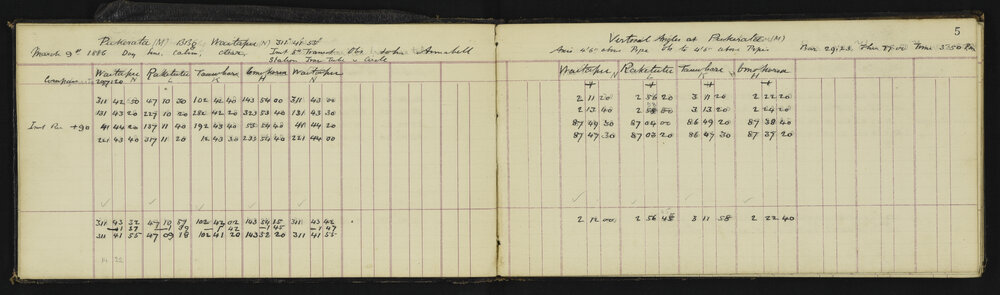 5
Pukerata (M) BBg Waitapu (N) 311° 41' 55"
March 9th 1886 Day fine, calm, clear. Inst 5in Transit Obs John Annabell
Station Iron Tube
Waitapu Raketutu Tauwhare Waitapu
N L K M N
311 42 50 47 10 30 102 42 40 143 54 00 311 43 00
131 43 20 227 10 20 282 42 20 323 53 40 131 43 30
+90 41 44 20 137 11 40 192 43 40 53 54 40 41 44 20
221 43 40 317 11 20 12 43 30 233 54 40 221 44 00
311 43 32 47 10 57 102 42 02 143 54 15 311 43 42
-1 37 -1 39 -1 42 -1 45 -1 47
311 41 55 47 09 18 102 41 20 143 52 20 311 41 55
Vertical Angles at Pukerata (M)
Axis 4'6" above Pipe Obs to 4'6" above Pipes Time 3.50 Pm
Waitapu N Raketutu L Tauwhare K M
+ + + +
2 11 20 2 56 20 3 11 20 2 22 20
2 13 40 2 58 00 3 13 20 2 24 20
87 49 30 87 04 00 86 49 20 87 38 40
87 47 30 87 03 20 86 47 30 87 37 20
2 12 00 2 56 45 3 11 58 2 22 40